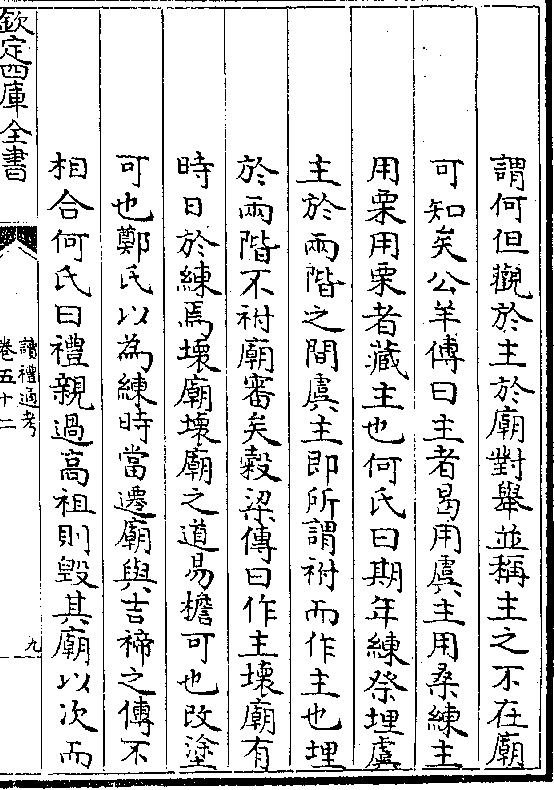 謂何但觀於主於廟對舉並稱主之不在廟
可知矣公羊傳曰主者曷用虞主用桑練主
用栗用栗者藏主也何氏曰期年練祭埋虞
主於兩階之間虞主即所謂祔而作主也埋
於兩階不祔廟審矣穀梁傳曰作主壞廟有
時日於練焉壞廟壞廟之道易檐可也改塗
可也鄭氏以為練時當遷廟與吉禘之傳不
相合何氏曰禮親過高祖則毀其廟以次而
欽定四庫全書
讀禮通考
卷五十二
九